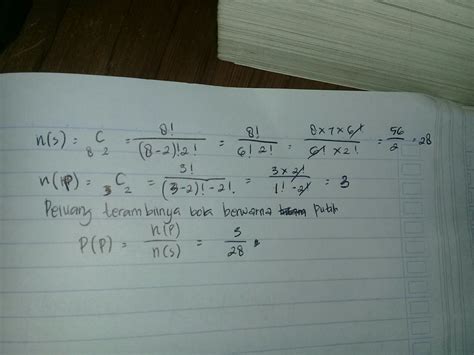 n(s) = ₈C₂ = 8!/(8-2)!2! = 8!/6!2! = 8×7×6!/6!×2! = 56/2 = 28
n(P) = ₃C₂ = 3!/(3-2)!-2! = 3×2!/1!-2! = 3
Peluang terambilnya bola berwarna putih
P(P) = n(P)/n(s) = 3/28.